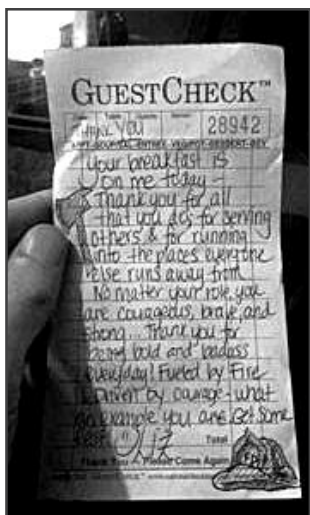 GUESTCHECK™
Date Table Guests Server
THANK YOU 28942
APPT-SOUP/SAL-ENTREE-VEG/POT-DESSERT-BEV
Your breakfast is
on me today -
Thank you for all
that you do; for serving
others & for running
into the places everyone
else runs away from.
No matter your role you
are courageous, brave, and
strong... Thank you for
being bold and badass
everyday! Fueled by Fire
& Driven by courage - what
an example you are. Get Some
rest! Liz
Total
Thank You — Please Come Again